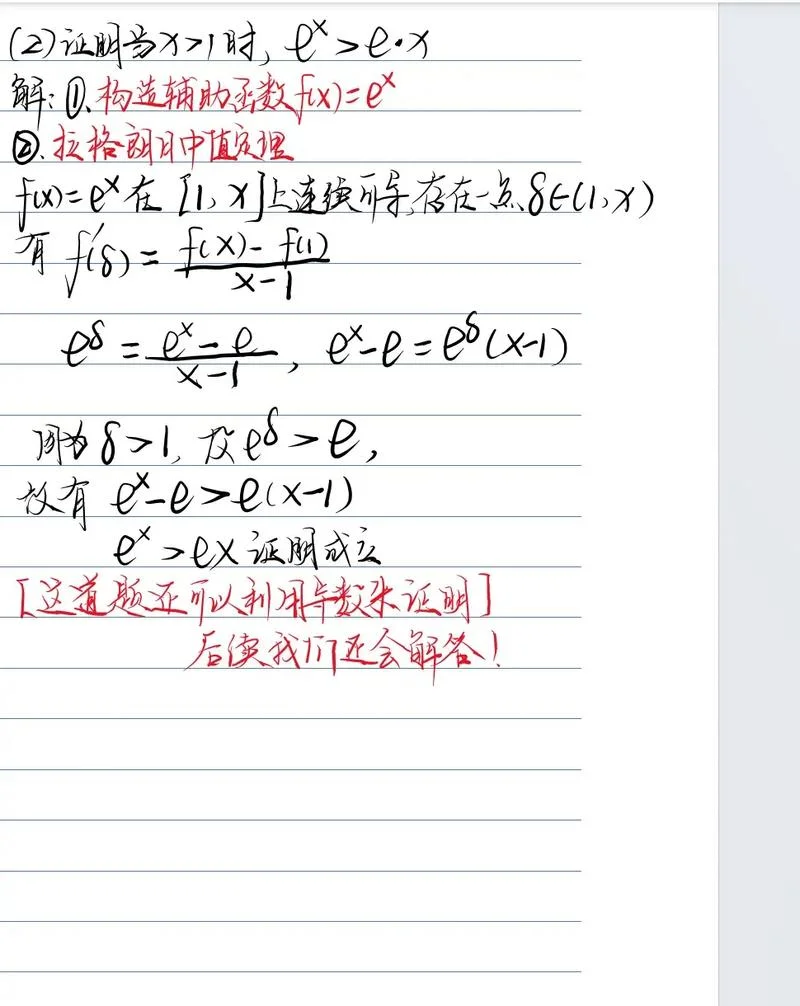 (2)证明当x>1时, e^x>e·x
解:①.构造辅助函数f(x)=e^x
②.拉格朗日中值定理
f(x)=e^x在[1,x]上连续可导,存在一点δ∈(1,x)
有 f'(δ)=\frac{f(x)-f(1)}{x-1}
e^δ=\frac{e^x-e}{x-1}, e^x-e=e^δ(x-1)
因为δ>1,故e^δ>e,
故有 e^x-e>e(x-1)
e^x>ex 证明成立
[这道题还可以利用导数来证明]
后续我们还会解答!